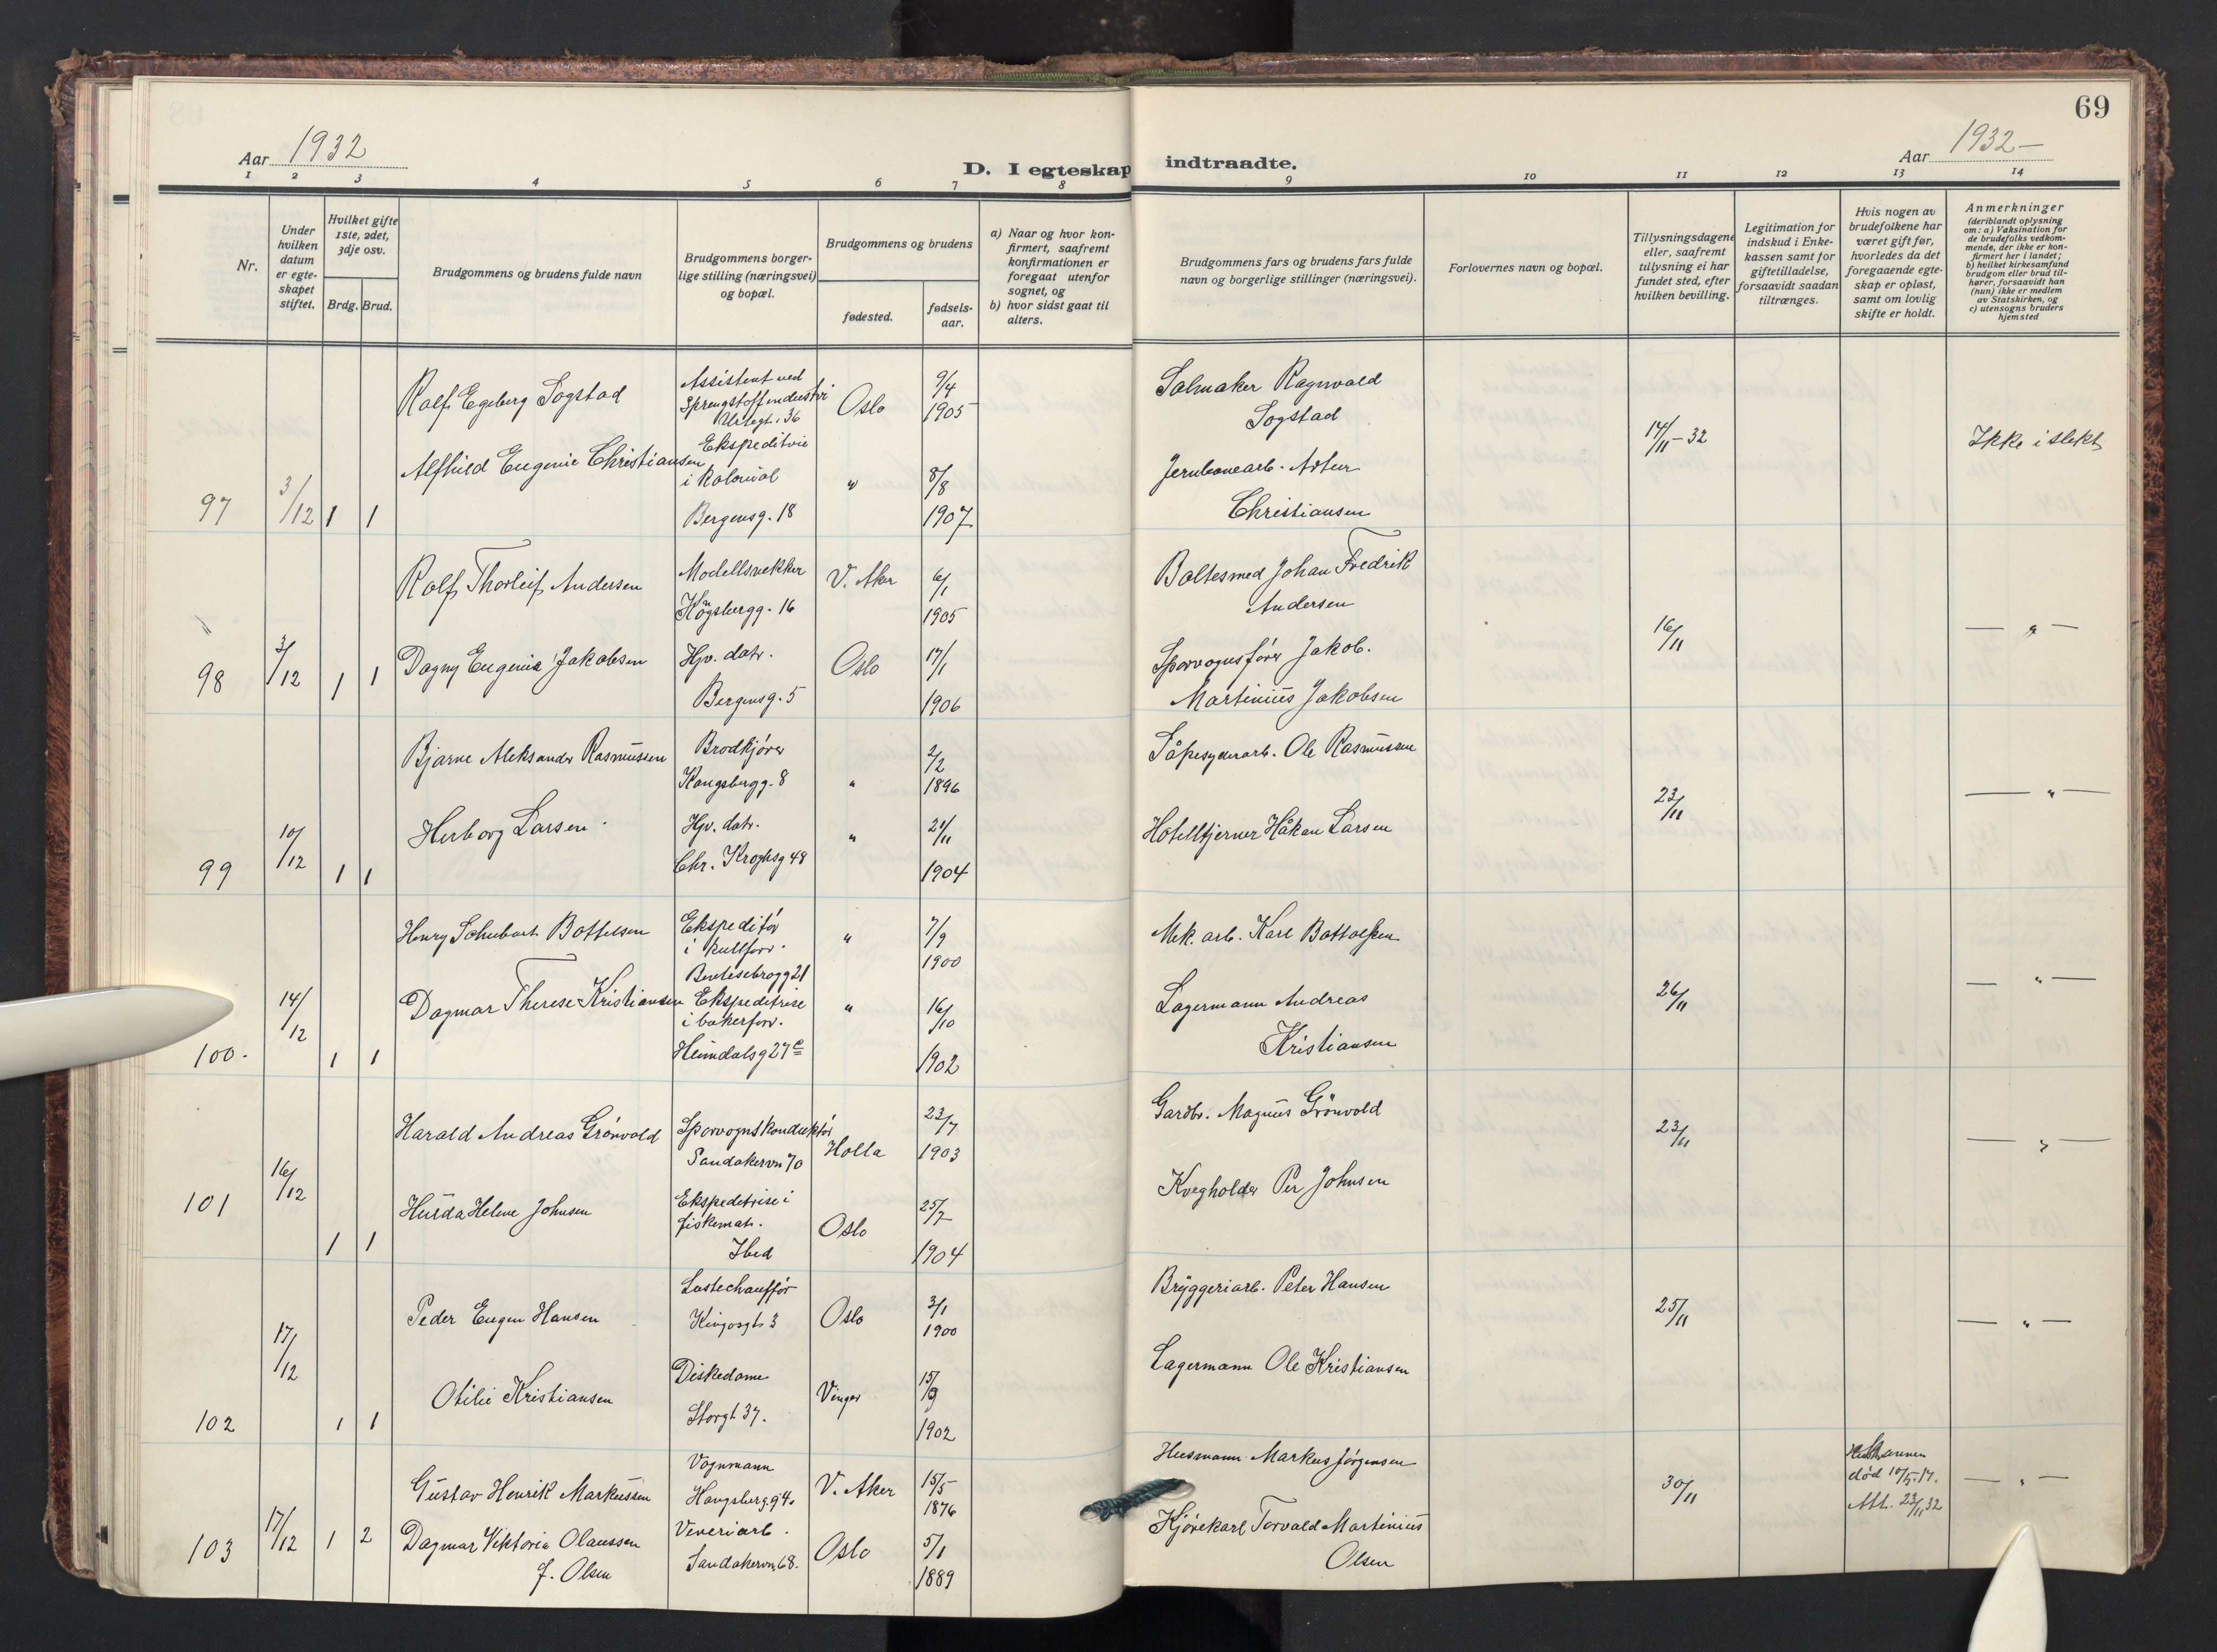 69
Aar 1932
D. I egteskap indtraadte.
Aar 1932 -
1 2 3 4 5 6 7 8 9 10 11 12 13 14
Nr.
Under hvilken datum er egteskapet stiftet.
Hvilket gifte 1ste, 2det, 3dje osv.
Brdg. Brud.
Brudgommens og brudens fulde navn
Brudgommens borgerlige stilling (næringsvei) og bopæl.
Brudgommens og brudens
fødested.
fødselsaar.
a) Naar og hvor konfirmert, saafremt konfirmationen er foregaat utenfor sognet, og
b) hvor sidst gaat til alters.
Brudgommens fars og brudens fars fulde navn og borgerlige stillinger (næringsvei).
Forlovernes navn og bopæl.
Tillysningsdagene eller, saafremt tillysning ei har fundet sted, efter hvilken bevilling.
Legitimation for indskud i Enkekassen samt for giftetilladelse, forsaavidt saadan tiltrænges.
Hvis nogen av brudefolkene har været gift før, hvorledes da det foregaaende egteskap er opløst, samt om lovlig skifte er holdt.
Anmerkninger
(deriblandt oplysning om: a) Vaksination for de brudefolks vedkommende, der ikke er konfirmert her i landet; b) hvilket kirkesamfund brudgom eller brud tilhører, forsaavidt han (hun) ikke er medlem av Statskirken, og c) utensogns bruders hjemsted
97 3/12 1 1
Rolf Egeberg Sogstad
Assistent ved
Sprengstoffindustri
Urtegt. 36
Oslo 9/4 1905
Salmaker Ragnvald
Sogstad
14/11 - 32
Ikke i slekt
Alfhild Eugenie Christiansen
Ekspeditrice
i kolonial
Bergensg. 18
" 8/8 1907
Jernbanearb. Artur
Christiansen
98 3/12 1 1
Rolf Thorleif Andersen
Kongsbergg. 16
V. Aker 6/1 1905
Boltesmed Johan Fredrik
Andersen
16/11
— " —
Dagny Eugenie Jakobsen
Hp. datr.
Bergensg. 5
Oslo 17/1 1906
Sporvognsfører Jakob
Martinius Jakobsen
99 10/12 1 1
Bjarne Aleksander Rasmussen
Brødkjører
Kongsbergg. 8
" 2/2 1896
Såpesyderarb. Ole Rasmussen
23/11
— " —
Herborg Larsen
Hp. datr.
Chr. Kroghsg 48
" 21/11 1904
Hotelltjener Håkan Larsen
100. 14/12 1 1
Henry Schubart Bottelsen
Ekspeditør
i kullforr.
Bentsebrogg 21
" 7/9 1900
Mek. arb. Karl Bottolfsen
26/11
— " —
Dagmar Therese Kristiansen
Ekspeditrise
i bakerforr.
Heimdalsg 27 c
" 16/10 1902
Lagermann Andreas
Kristiansen
101 16/12 1 1
Harald Andreas Grönvold
Sporvognskonduktør
Sandakervn 70
Holla 23/7 1903
Gardbr. Magnus Grönvold
23/11
— " —
Hulda Helene Johnsen
Ekspeditrise i
fiskemat.
Ibid
Oslo 25/7 1904
Kvegholder Per Johnsen
102 17/12 1 1
Peder Eugen Hansen
Lastechauffør
Kingosgt. 3
Oslo 3/1 1900
Bryggeriarb. Peter Hansen
25/11
— " —
Otilie Kristiansen
Diskedame
Storgt 37.
Vinger 15/9 1902
Lagermann Ole Kristiansen
103 17/12 1 2
Gustav Henrik Markussen
Vognmann
V. Aker 15/5 1876
Husmann Markus Jørgensen
30/11
Mannen
død 10/5-17.
Att. 23/11 32
— " —
Dagmar Viktoria Olaussen
f. Olsen
Veveriarb.
Sandakervn. 68.
Oslo 5/1 1889
Kjørekarl Torvald Martinius
Olsen